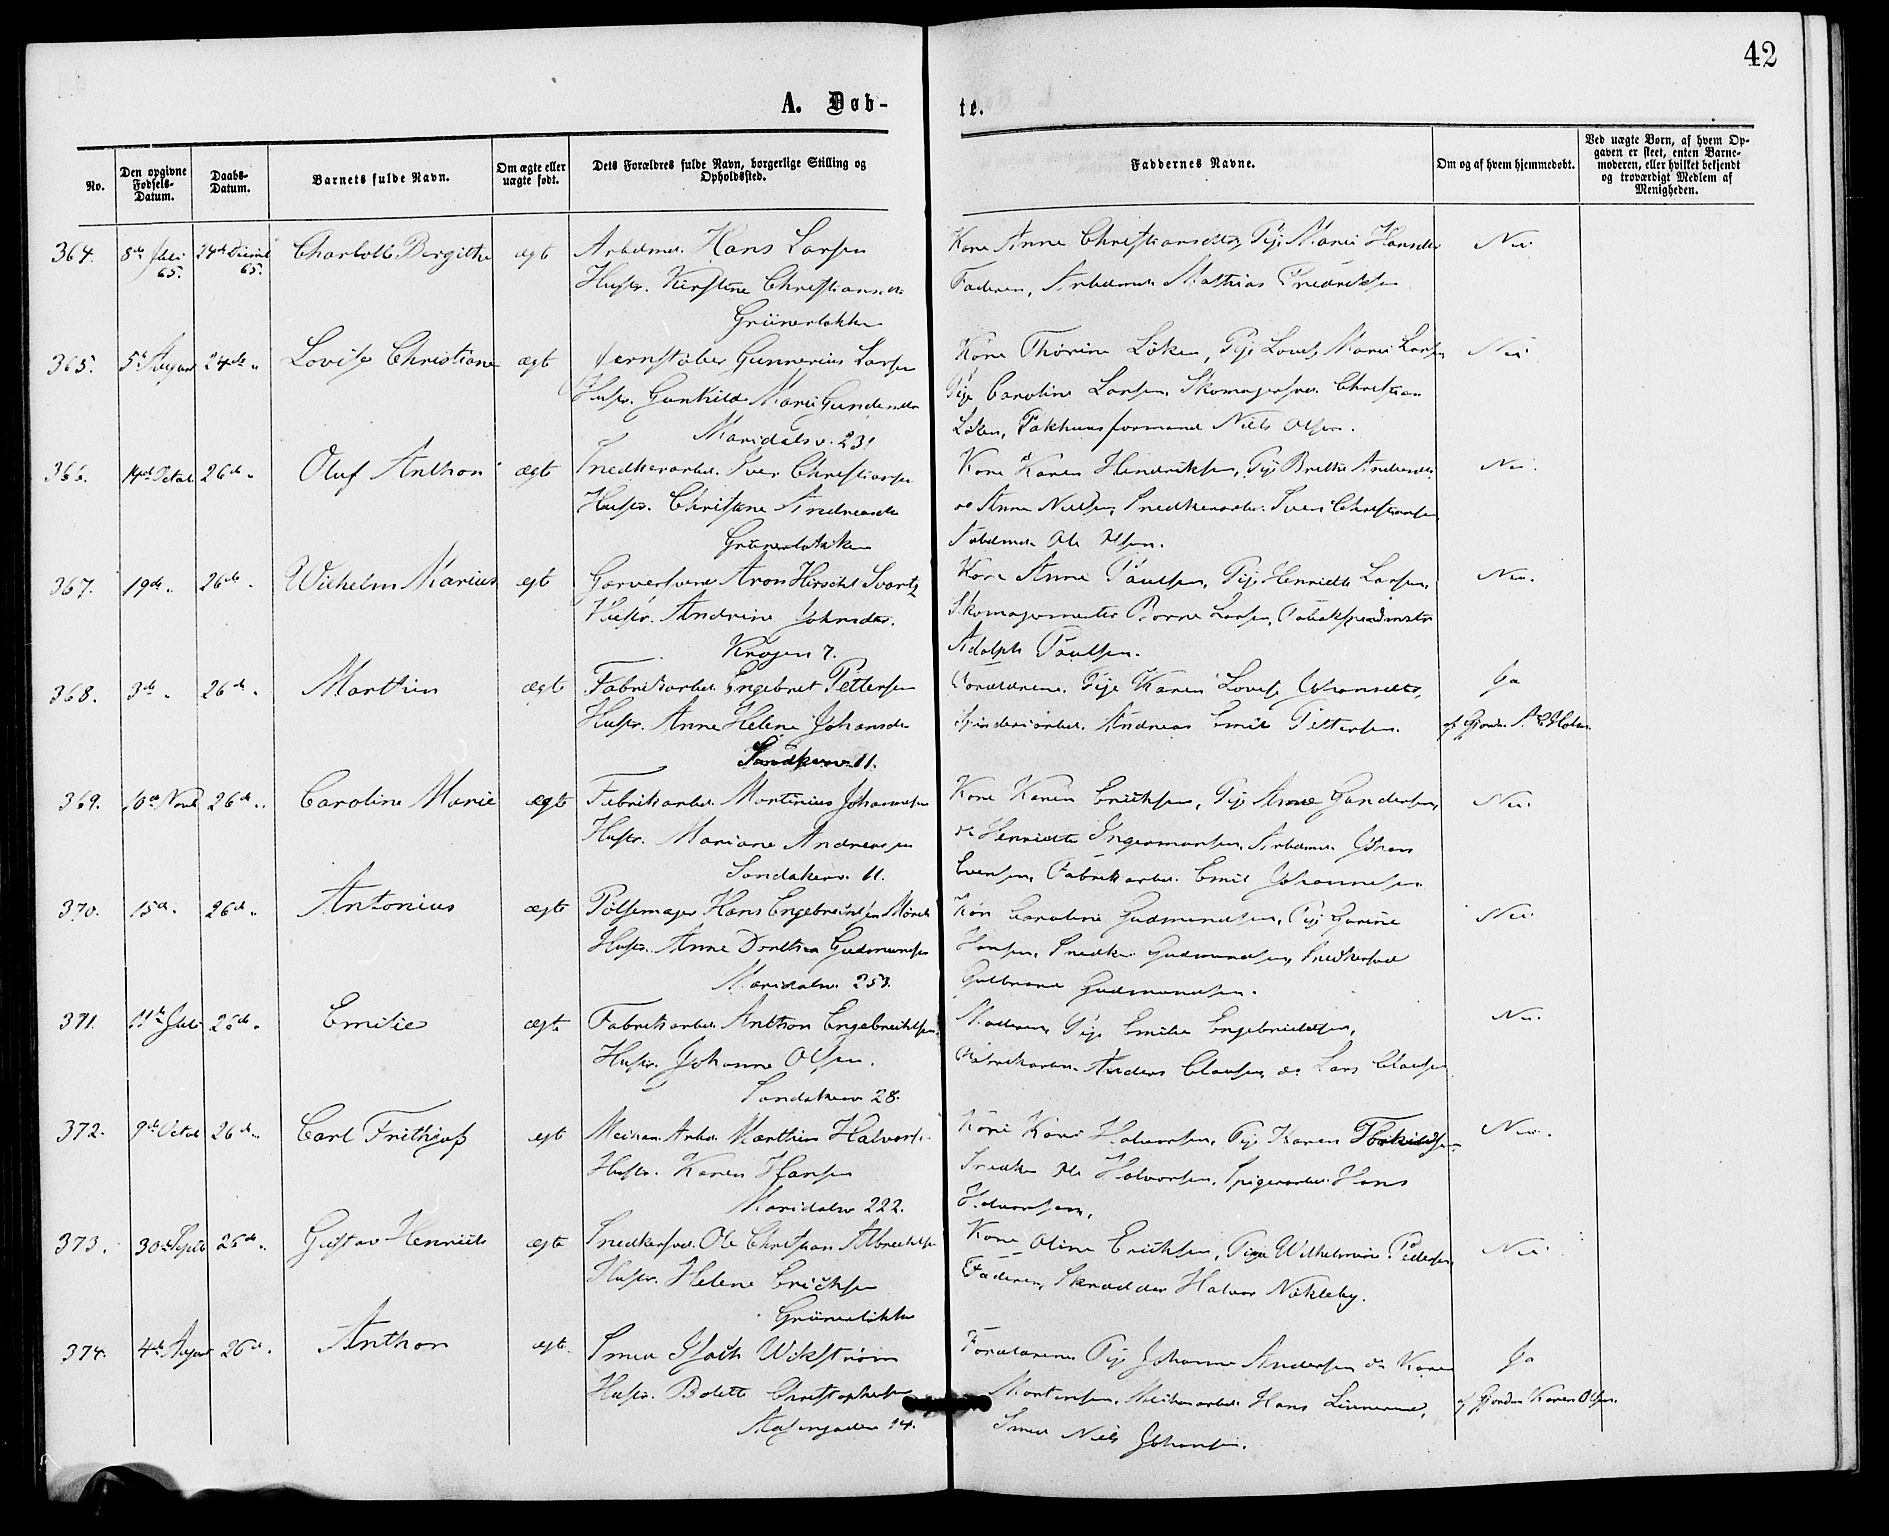 42
A. Døb-
te.
No.
Den opgivne Fødsels-Datum.
Daabs-Datum.
Barnets fulde Navn.
Om ægte eller uægte født.
Dets Forældres fulde Navn, borgerlige Stilling og Opholdssted.
Faddernes Navne.
Om og af hvem hjemmedøbt.
Ved uægte Born, af hvem Opgaven er skeet, enten Barnemoderen, eller hvilket bekjendt og troværdigt Medlem af Menigheden.
364. 8de Juli 65. 24de Decemb 65. Charlotte Birgithe ægt Arbdmd. Hans Larsen Kone Anne Christiansdtr, Pige Marie Hansdtr Nei.
Hustr. Kirstine Christiansdtr Faderen, Arbdmd. Mathias Fredriksen
Grünerløkken
365. 5te August 24de " Lovise Christiane ægt Jernstøber Gunnerius Larsen Kone Thorine Løken, Pige Lovise Marie Larsen Nei
Hustr. Gunhilde Marie Gundersdtr Pige Caroline Larsen, Skomagersvd. Christian
Maridalsv. 231 Løken, Pakhuusformand Niels Olsen.
366. 14de Octob 26de " Oluf Anthon ægte Snedkerarbd. Iver Christiansen Kone Karen Hendriksen, Pige Brethe Andersdtr Nei.
Hustr. Christine Andreasdtr og Anne Nielsen, Snedkerarbd. Iver Christiansen
Grünerløkken Arbdmd. Ole Olsen.
367. 19de " 26de " Wilhelm Marius ægt Garversvend Aron Hirsch Svartz Kone Anne Paulsen, Pige Henriette Larsen, Nei.
Hustr. Andrine Johnsdtr. Skomagermester Borre Larsen, Tobakspindmstr
Krogen 7. Adolph Paulsen.
368. 3de " 26de " Marthin ægte Fabrikarbd. Engebret Pettersen Forældrene, Pige Karen Lovise Johansdtr, Ja
Hustr. Anne Helene Johansdtr Spinderiarbd. Andreas Emil Pettersen. af Gjordm. Holm.
Sandakerv. 11.
369. 10de Novb 26de " Caroline Marie ægte Fabrikarbd. Martinius Johannesen Kone Karen Erichsen, Pige Anne Gundersen, Nei.
Hustr. Mariane Andreasen og Henriette Ingermansen, Arbdmd. Johan
Sandakerv. 11. Evensen, Fabrikarbd. Emil Johannesen
370. 15de " 26de " Antonius ægte Pølsemager Hans Engebretsen Mørch Kone Caroline Gudmundsen, Pige Gurine Nei
Hustr. Anne Dorthea Gudmundsen Hansen, Snedker Gudmundsen, Snedkersvd
Maridalsv. 253. Gulbrand Gudmundsen.
371. 11te Juli 26de " Emilie ægte Fabrikarbd. Anthon Engebrethsen, Moderen, Pige Emilie Engebrethsen, Nei.
Hustr. Johanne Olsen. Fabrikarbd. Anders Clausen og Lars Clausen
Sandakerv 28.
372. 9de Octob 26de " Carl Frithjof ægt Mechan. Arbd. Marthin Halvorsen Kone Kari Halvorsen, Pige Karen Torkildsen. Nei.
Hustr. Karen Hansen Snedker Ole Halvorsen, Spigerarbd. Hans
Maridalsv 222. Halvorsen.
373. 30te Septb 26de " Gustav Henrik ægte Snedkersvd. Ole Christian Albrechtsen Kone Oline Erichsen, Pige Wilhelmine Pedersen, Nei.
Hustr. Helene Erichsen Faderen, Skrædder Halvor Nikleby.
Grünerløkken
374. 4de August 26de " Anthon ægt. Smed Isach Wikstrøm Forældrene Pige Johanne Andersen og Karen Ja
Hustr. Bolette Christophersen Mortensen, Mechanarbd. Hans Linnerud, af Gjordm. Karen Olsen.
14. Smed Nils Johansen.